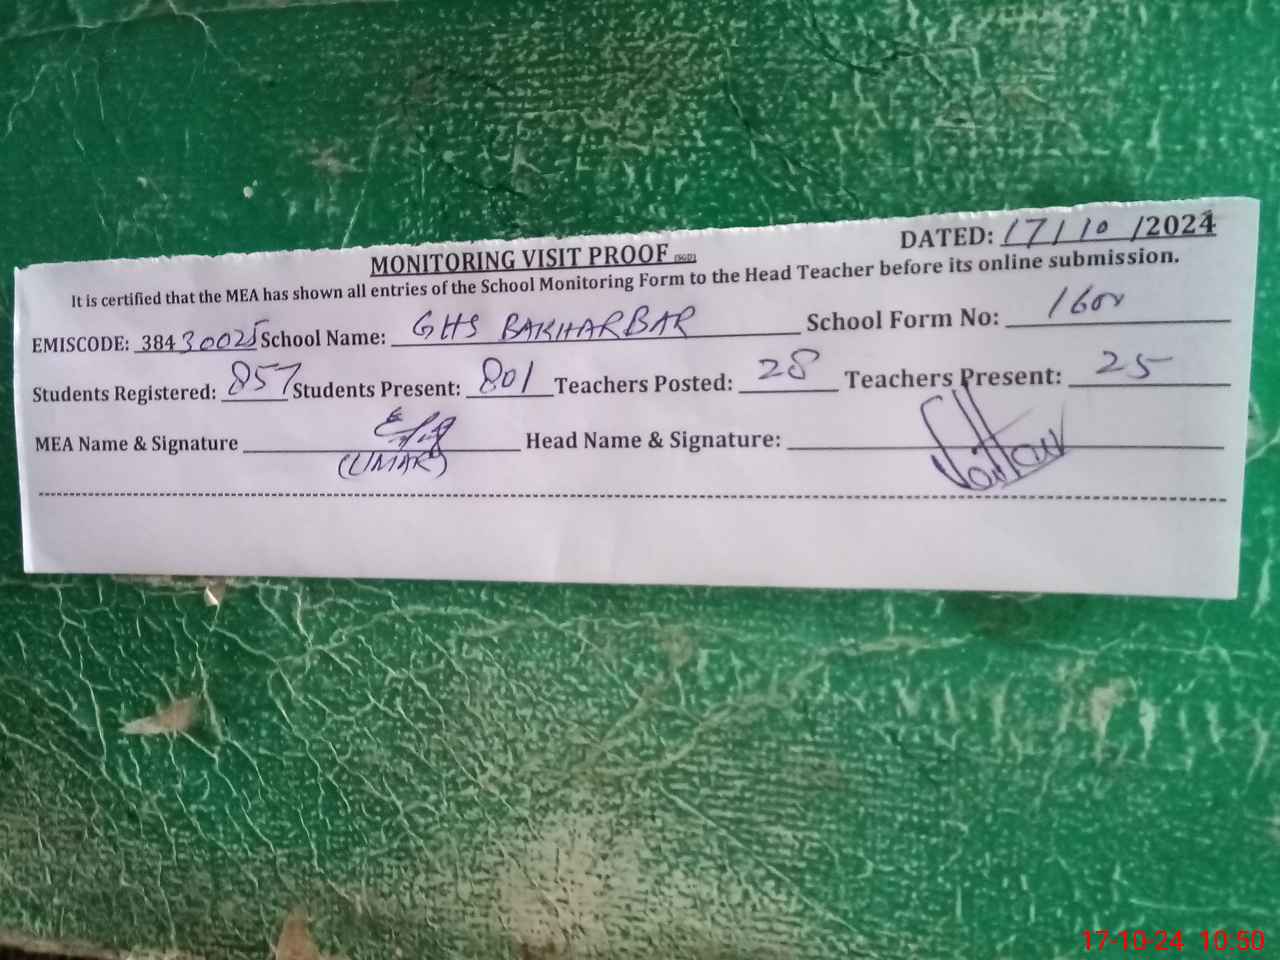 MONITORING VISIT PROOF (SGD) DATED: 17/10/2024
It is certified that the MEA has shown all entries of the School Monitoring Form to the Head Teacher before its online submission.
EMISCODE: 38430025 School Name: GHS BAKHARBAR School Form No:
Students Registered: 857 Students Present: 801 Teachers Posted: 28 Teachers Present: 25
MEA Name & Signature Head Name & Signature:
(UMAR)
17-10-24 10:50